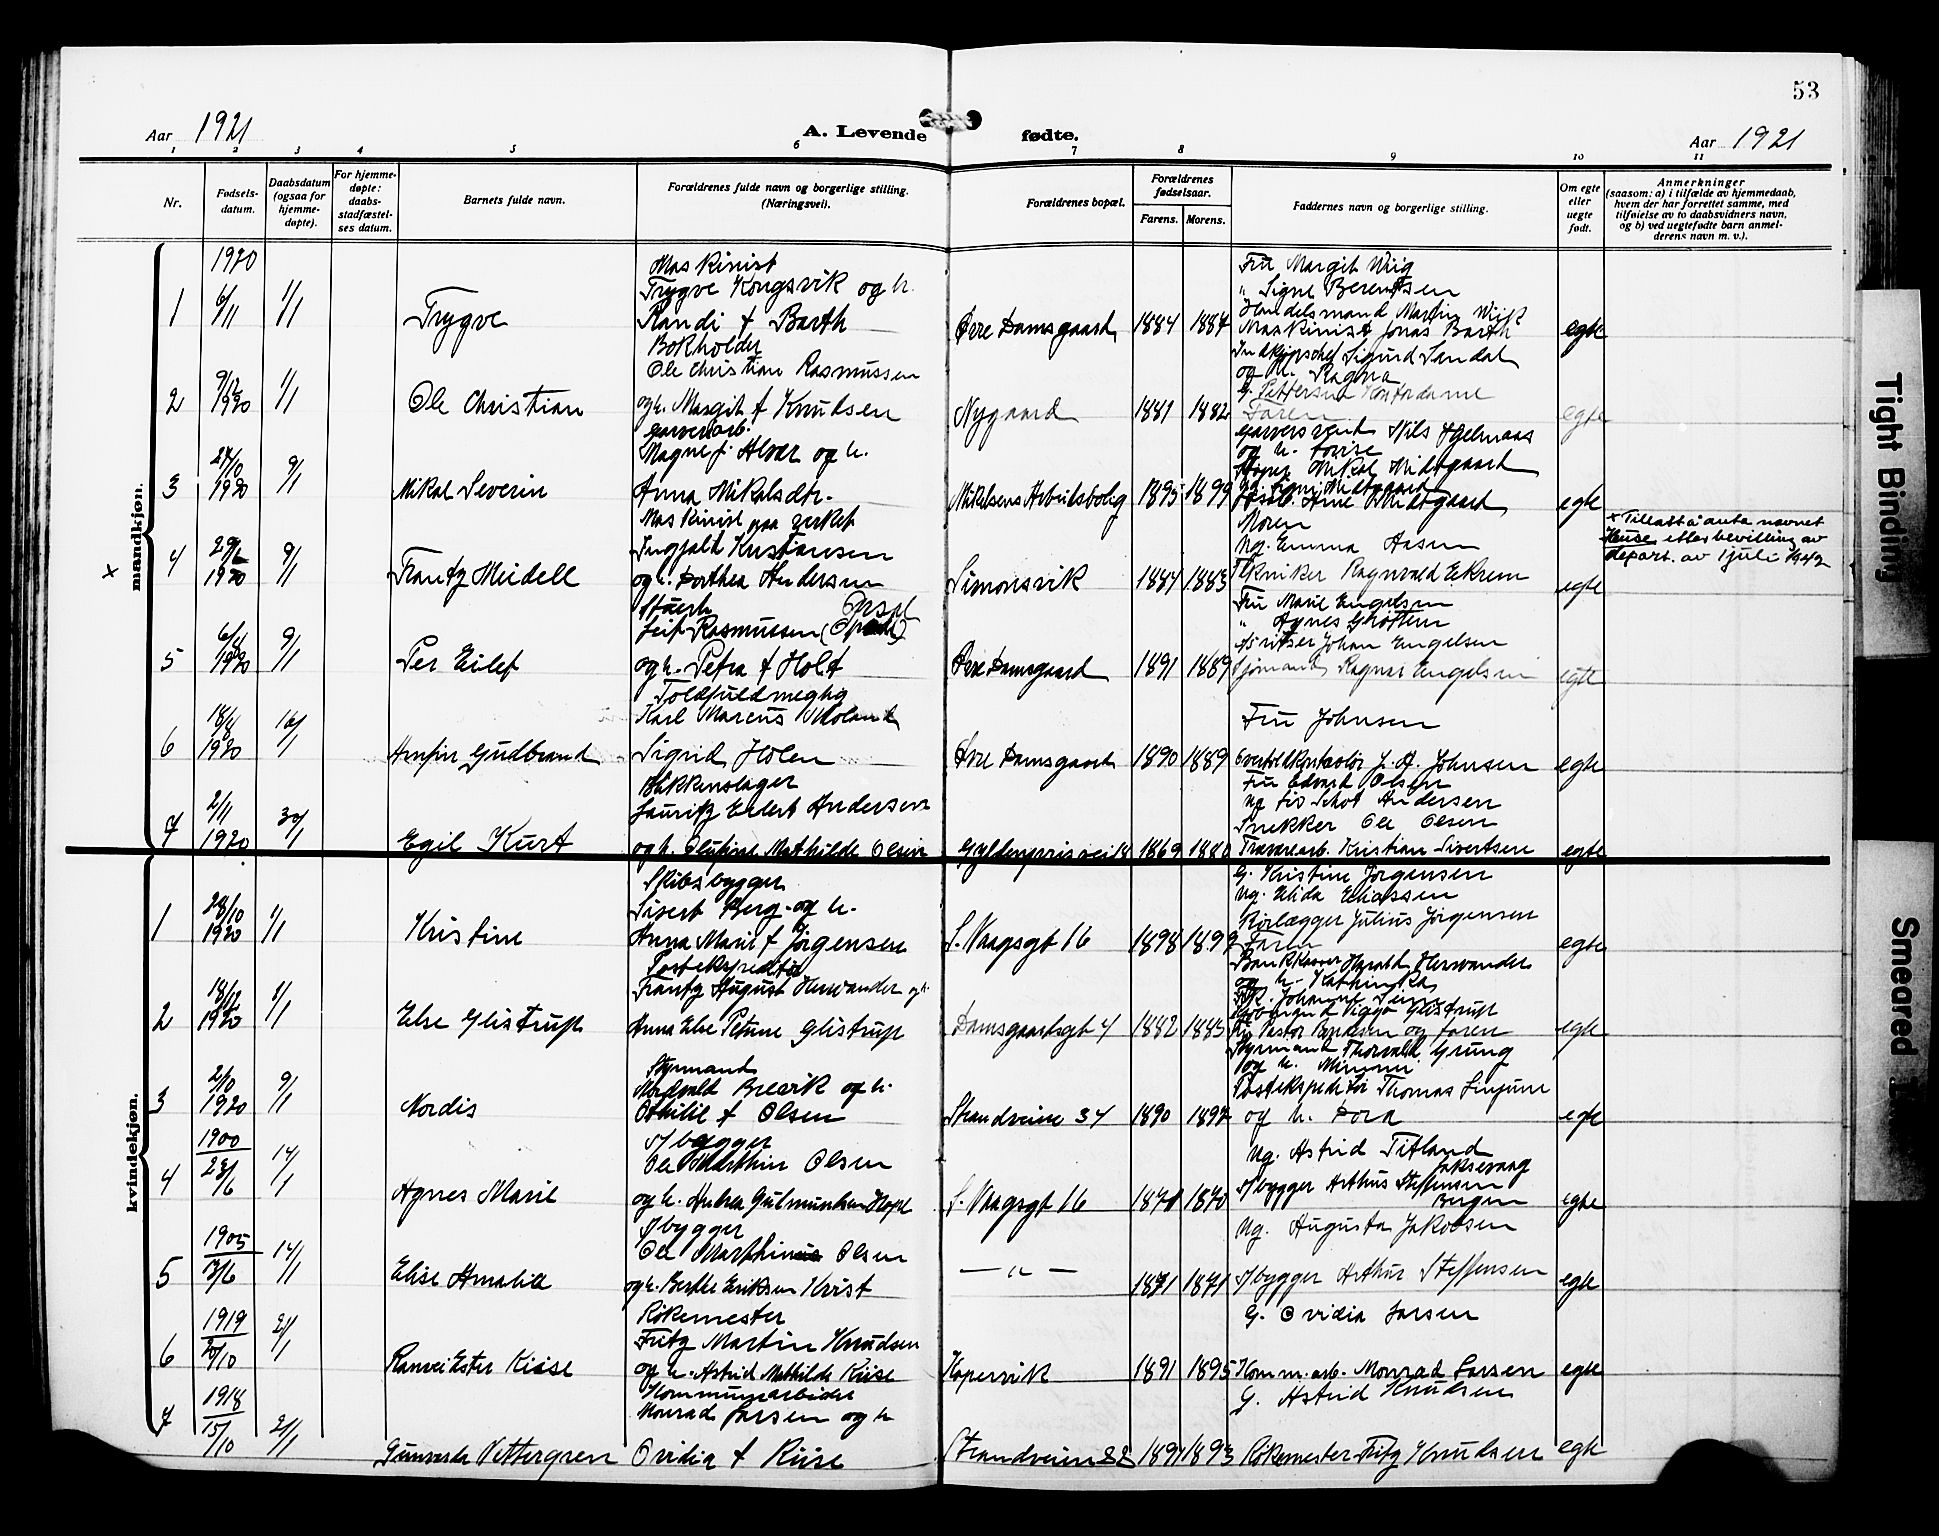 53
Aar 1921
A. Levende fødte.
Aar 1921
1 2 3 4 5 6 7 8 9 10 11
Nr.
Fødsels-
datum.
Daabsdatum
(ogsaa for
hjemme-
døpte).
For hjemme-
døpte:
daabs-
stadfæstel-
ses datum.
Barnets fulde navn.
Forældrenes fulde navn og borgerlige stilling.
(Næringsvei).
Forældrenes bopæl.
Forældrenes
fødselsaar.
Farens. Morens.
Faddernes navn og borgerlige stilling.
Om egte
eller
uegte
født.
Anmerkninger
(saasom: a) i tilfælde av hjemmedaab,
hvem der har forrettet samme, med
tilføielse av to daabsvidners navn,
og b) ved uegtefødte barn anmel-
derens navn m. v.).
mandkjøn.
1
1920
6/11
1/1
Trygve
Maskinist
Trygve Kongsvik og h.
Randi f Barth
Øvre Damsgaard
1884 1884
Fru Margit Wiig
" Signe Berentsen
Handelsmand Martin Wiig
Maskinist Jonas Barth
egte
2
9/12
1920
1/1
Ole Christian
Bokholder
Ole Christian Rasmussen
og h. Margit f Knudsen
Nygaard
1881 1882
Indkjøpschef Sigurd Sandal
og h. Ragna
G. Pettersen Kontordame
Faren
egte
3
24/10
1920
9/1
Mikal Severin
garverarb.
Magne J. Alver og h.
Anna Mikalsdtr.
Mikelsens Arbeidsbolig
1895 1899
garversvend Nils Hjelmaas
og h. Lovise
Mikal Midtgaard
Signe Midtgaard
Arne Midtgaard
egte
x
4
1920
9/1
Frantz Meidell
Maskinist paa verket
Ingjald Kristiansen
og h. Dorthea Andersen
Simonsvik
1884 1883
Moren
Ug. Emma Aasen
Tekniker Ragnvald Ekrem
egte
x Tillatt å anta navnet
etter bevilling av
depart. av 1 juli 1942
5
1920
9/1
Per Eilef
Leif Rasmussen
og h. Petra f Holt
Øvre Damsgaard
1891 1889
Fru Marie Engelsen
" Agnes Grotten
Johan Engelsen
Sjømand Ragnar Engelsen
egte
6
18/8
1920
16/1
Arnfin Gudbrand
Toldfuldmegtig
Karl Marcus Moland
Sigrid Holen
Øvre Damsgaard
1890 1889
Fru Johnsen
J. A. Johnsen
egte
7
2/11
1920
30/1
Egil Kurt
Blikkenslager
Lauritz Eilert Andersen
og h. Olufine Mathilde Olsen
Gyldenprisvei 14
1869 1880
Fru Edvard Olsen
Ug Lis Andersen
Snekker Ole Olsen
Trævarearb. Kristian Sivertsen
egte
kvindekjøn.
1
28/10
1920
1/1
Kristine
Skibsbygger
Sivert Berg og h.
Anna Marie f Jørgensen
S. Vaagsgt 16
1898 1899
G. Kristine Jørgensen
Ug. Alida Eliassen
Rørlægger Julius Jørgensen
Faren
egte
2
18/12
1920
1/1
Else Glistrup
Postekspeditør
Frantz August Herwander og h.
Anna Else Petrine Glistrup
Damsgaardsgt 4
1882 1883
Bankkasser Harald Herwander
og h. Kathinka
Viggo Glistrup
og faren
egte
3
2/10
1920
9/1
Nordis
Styrmand
Nordvald Brevik og h.
Othilie f Olsen
Strandveien 34
1890 1897
Styrmand Thorvald Grung
og h. Mimmi
Postekspeditør Thomas Linjum
og h. Dora
egte
4
1900
28/6
14/1
Agnes Marie
s/bygger
Ole Marthin Olsen
og h. Andrea Gudmundsen Hope
S. Vaagsgt 16
1870 1870
Ug. Astrid Titland
Laksevaag
s/bygger Arthur Steffensen
Bergen
egte
5
1905
13/6
14/1
Elise Amalie
s/bygger
Ole Marthinus Olsen
og h. Berthe Eriksen Kvist
— " —
1871 1871
Ug. Augusta Jakobsen
s/bygger Arthur Steffensen
egte
6
1919
20/10
21/1
Ranvei Ester Kiise
Røkemester
Fritz Martin Knudsen
og h. Astrid Mathilde Riise
Kopervik
1891 1895
G. Ovidia Larsen
Komm. arb. Monrad Larsen
egte
7
1918
15/10
21/1
Vettergren
Kommunearbeider
Monrad Larsen og h
Ovidia f Riise
Strandveien 88
1891 1893
G. Astrid Knudsen
Røkemester Fritz Knudsen
egte
Tight Binding
Smeared